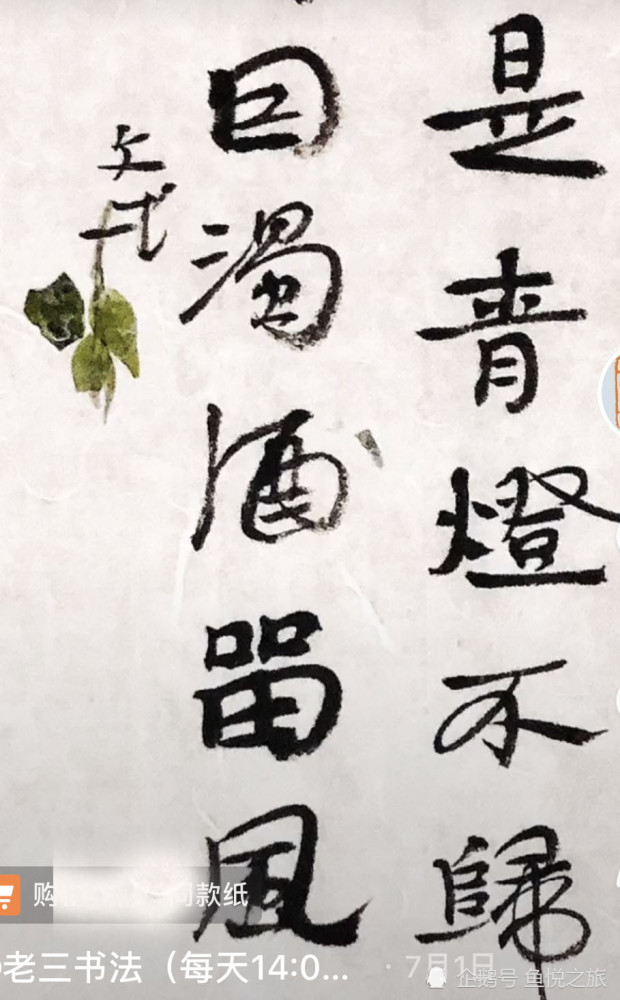 是青燈不歸
因濁酒留風
购 同款纸
老三书法（每天14:0... · 7月1日
企鹅号 鱼悦之旅